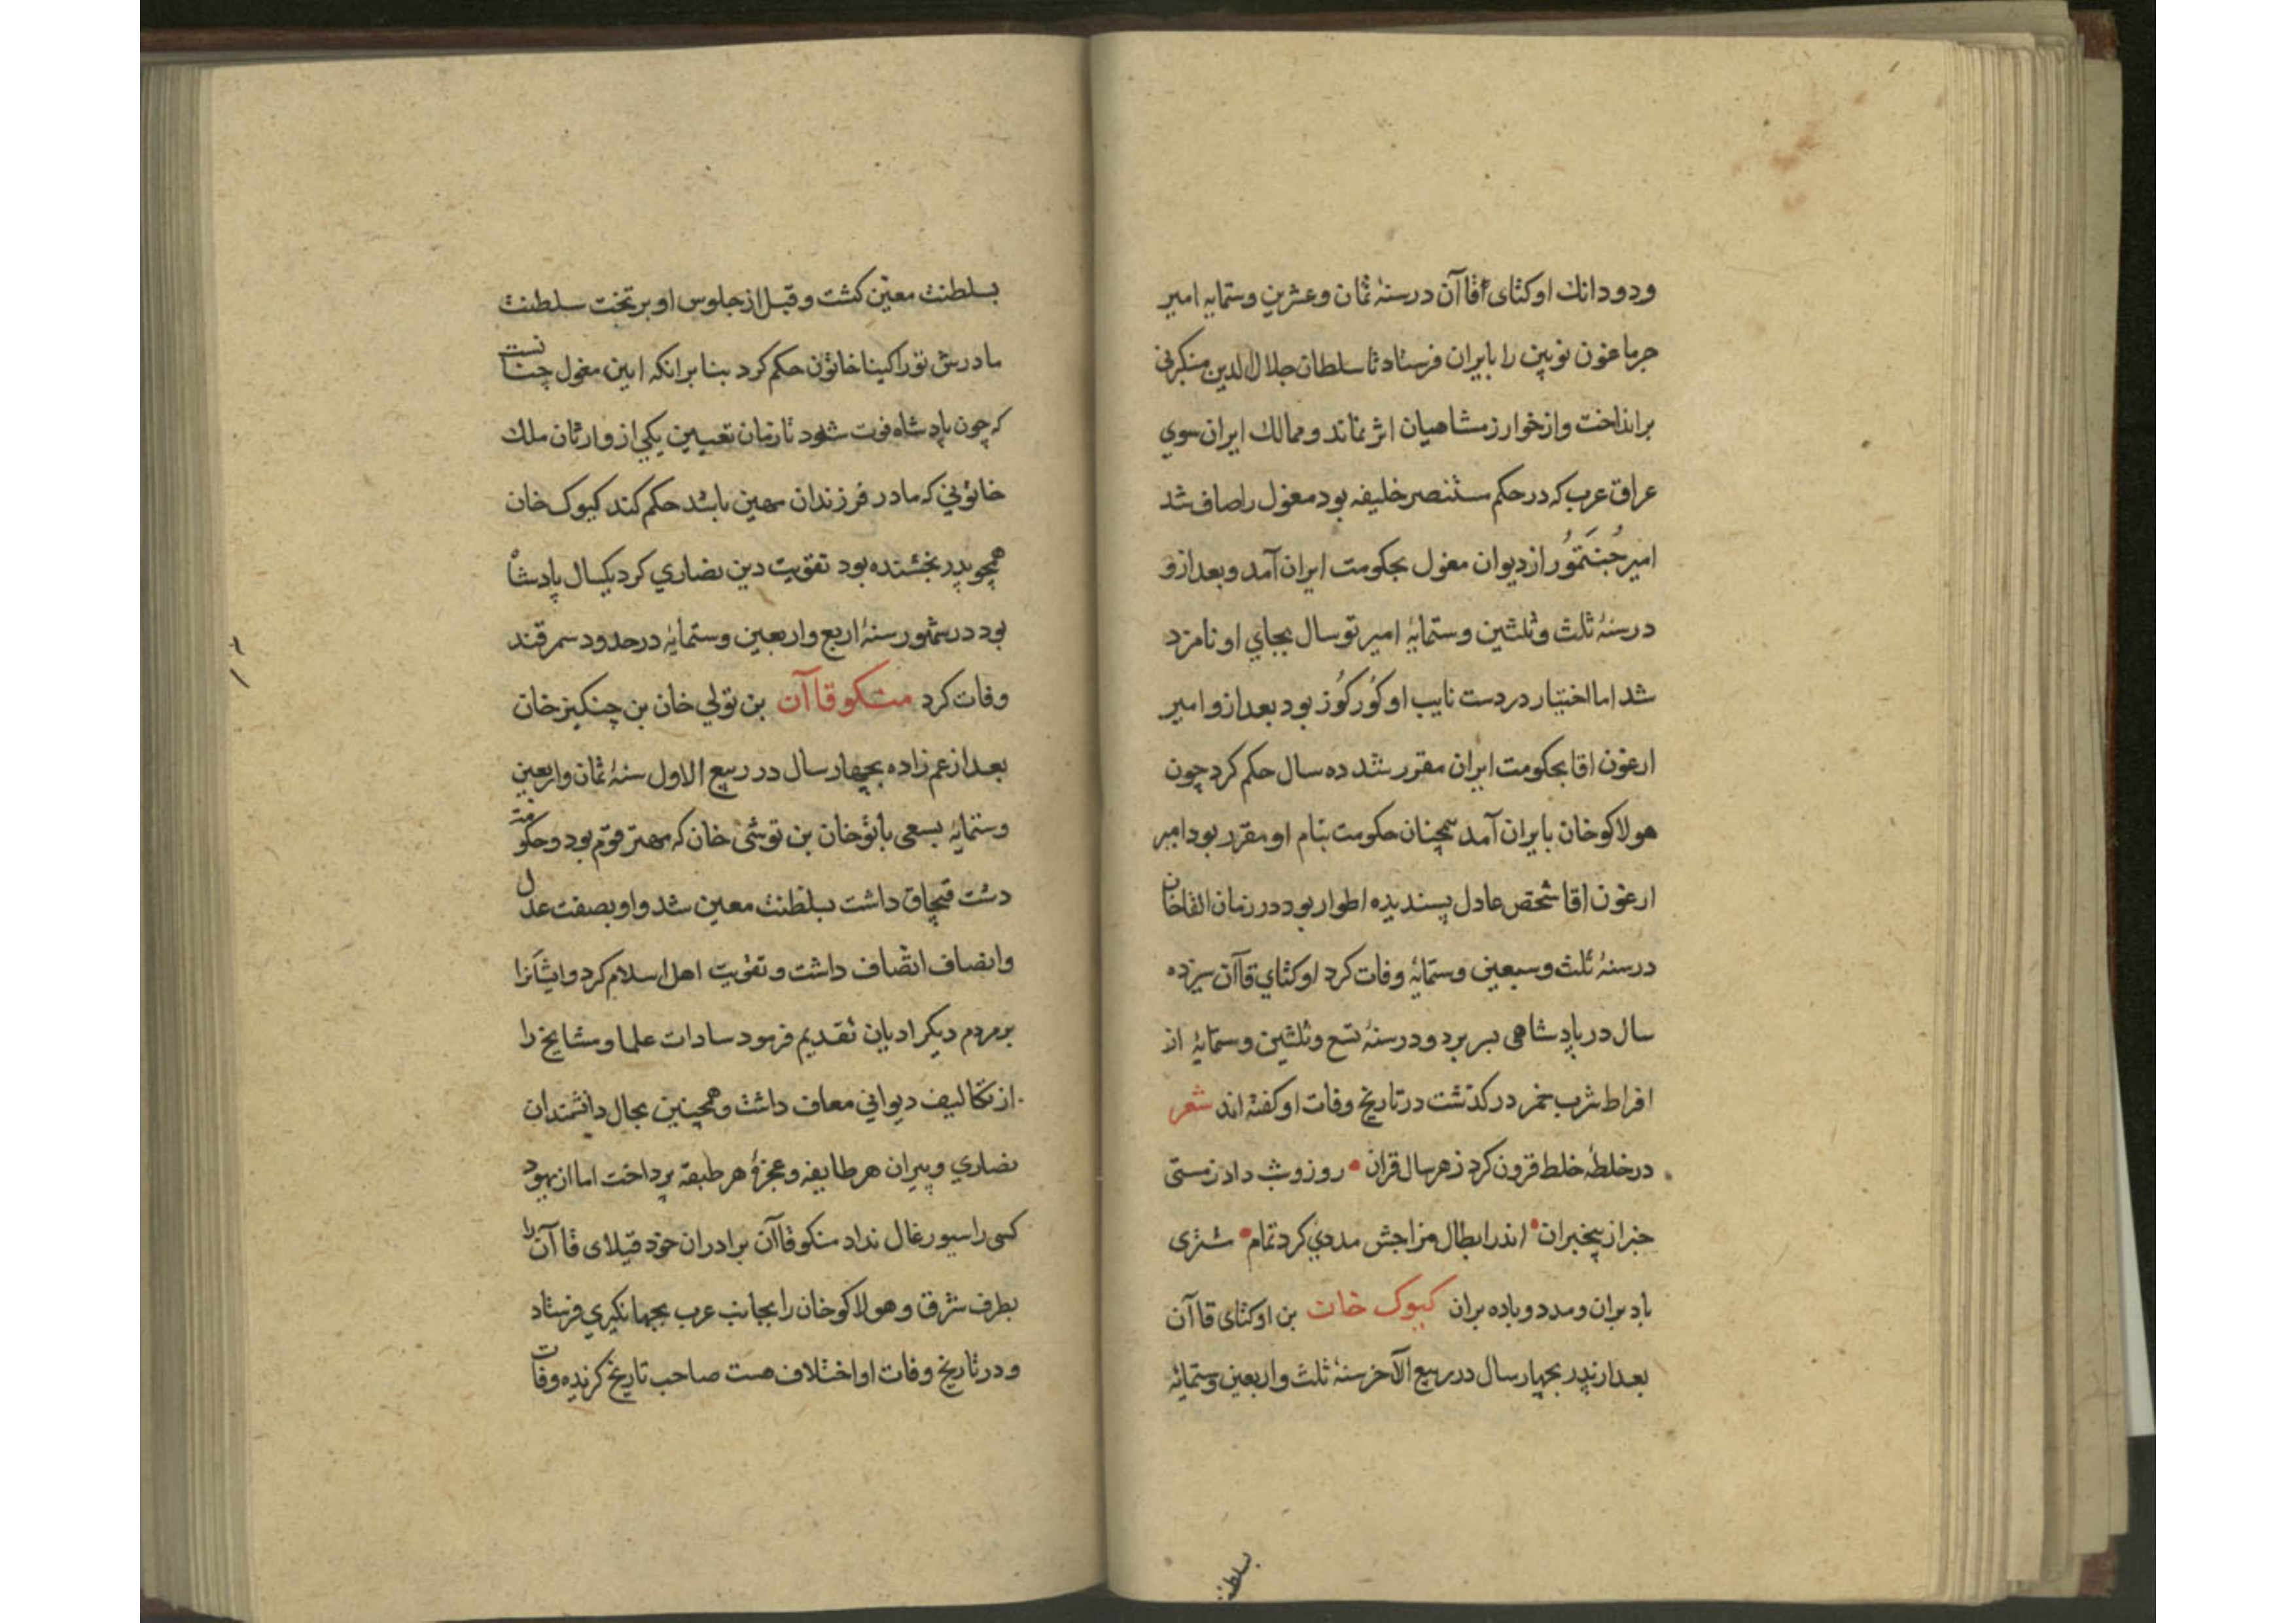 ودودانك اوكتاى قاآن درسنهٔ ثمان وعشرين وستمايه امير
جرماغون نويين را بايران فرستاد تا سلطان جلال الدين منكبرنى
برانداخت وازخوارزمشاهيان اثر نماند وممالك ايران سوي
عراق عرب كه درحكم مستنصر خليفه بود مغول راصاف شد
امير جُنتَمُور ازديوان مغول بحكومت ايران آمد وبعدازو
درسنهٔ ثلث وثلثين وستمايهٔ امير توسال بجاي او نامزد
شد اما اختيار دردست نايب او كُوركُوز بود بعدازو امير
ارغون اقا بحكومت ايران مقرر شد ده سال حكم كرد چون
هولاكوخان بايران آمد همچنان حكومت بنام او مقرر بود امير
ارغون اقا شخص عادل پسنديده اطوار بود در زمان القاخان
درسنهٔ ثلث وسبعين وستمايهٔ وفات كرد اوكتاي قاآن سيزده
سال درپادشاهى بسر برد ودرسنهٔ تسع وثلثين وستمايهٔ از
افراط شرب خمر دركذشت درتاريخ وفات او كفته اند شعر
درخلطهٔ خلط فزون كرد زهرسال قران • روز وشب داد زمستى
خبر از بيخبران • اندر ابطال مزاجش مددي كرد تمام • شترى
باد بران ومدد وباده بران كيوك خان بن اوكتاى قاآن
بعدازپدر بچهارسال درربيع الآخر سنهٔ ثلث واربعين وستمايهٔ
بسلطنت
بسلطنت معين كشت وقبل ازجلوس او برتخت سلطنت
مادرش توراكينا خاتون حكم كرد بنا برانكه ايين مغول چنانست
كه چون پادشاه فوت شود تازمان تعيين يكي از وارثان ملك
خاتونى كه مادر فرزندان مهين باشد حكم كند كيوك خان
همچو پدر بخشنده بود تقويت دين نصاري كرد يكسال پادشاه
بود درشهور سنهٔ اربع واربعين وستمايهٔ درحدود سمرقند
وفات كرد منكوقاآن بن تولي خان بن چنكيزخان
بعداز عم زاده بچهارسال در ربيع الاول سنهٔ ثمان واربعين
وستمايهٔ بسعى باتوخان بن توشى خان كه مهتر قوم بود وحكومت
دشت قبچاق داشت بسلطنت معين شد واو بصفت عدل
وانصاف اتصاف داشت وتقويت اهل اسلام كرد وايشانرا
برمردم ديكر اديان تقديم فرمود سادات علما ومشايخ را
ازتكاليف ديواني معاف داشت وهمچنين بحال دانشمندان
نصاري وپيران هرطايفه وعجزهٔ هرطبقه پرداخت اما از يهود
كسى را سيورغال نداد منكوقاآن برادران خود قبلاى قاآن را
بطرف شرق وهولاكوخان را بجانب عرب بجهانكيري فرستاد
ودرتاريخ وفات او اختلاف هست صاحب تاريخ كزيده وفات